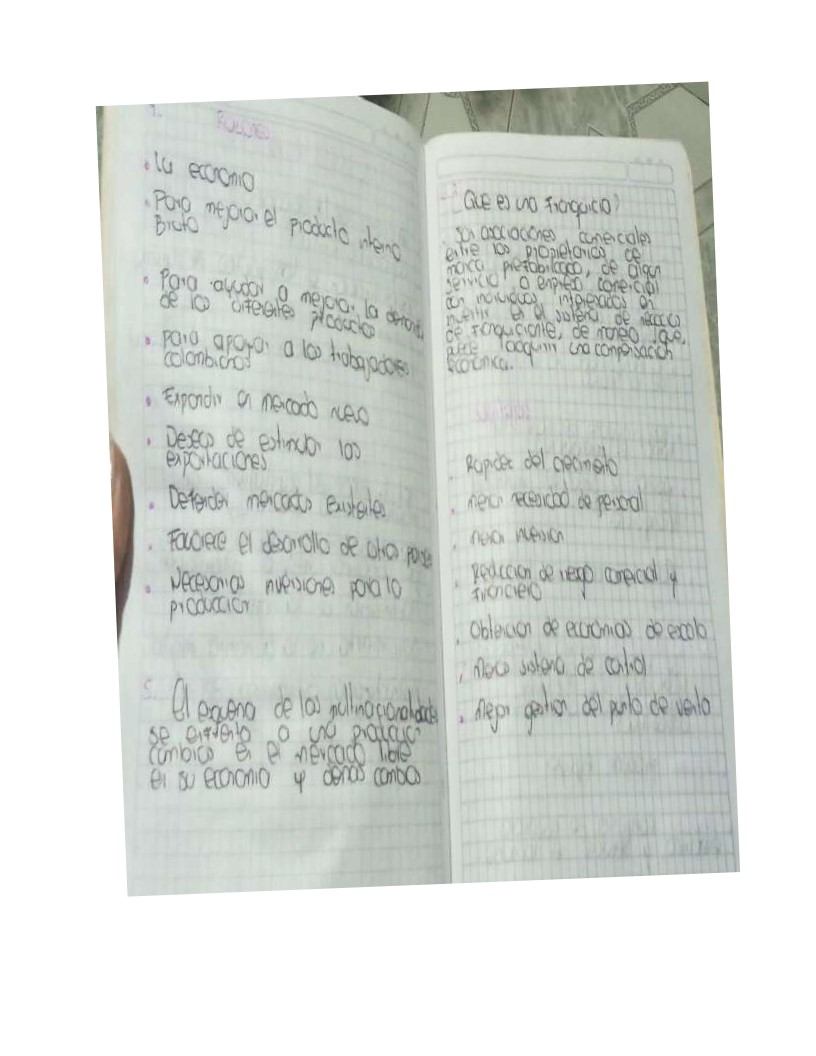 1.
Razones
. La economia
. Para mejorar el producto interno
Bruto
. Para ayudar a mejorar la demanda
de los diferentes productos
. para apoyar a los trabajadores
colombianos
. Expandir un mercado nuevo
. Deseos de estimular los
exportaciones
. Defender mercados existentes
. Favorece el desarrollo de otros paises
. Necesarias inversiones para la
produccion
5. El esquema de las multinacionalidades
se enfrenta a una
cambios en el mercado libre
en su economia y demas cambios
Que es una Franquicia?
Son asociaciones comerciales
entre los propietarios de
marca prefabricado, de algun
servicio o empresa comercial
con individuos interesados en
invertir en el sistema de negocio
de franquiciante, de manera que,
puede adquirir una compensación
Economica.
Rapidez del crecimiento
. menor necesidad de personal
. menor inversion
. Reduccion de riesgo comercial y
Financiero
. Obtencion de economias de escala
. sistema de control
. Mejor gestion del punto de venta